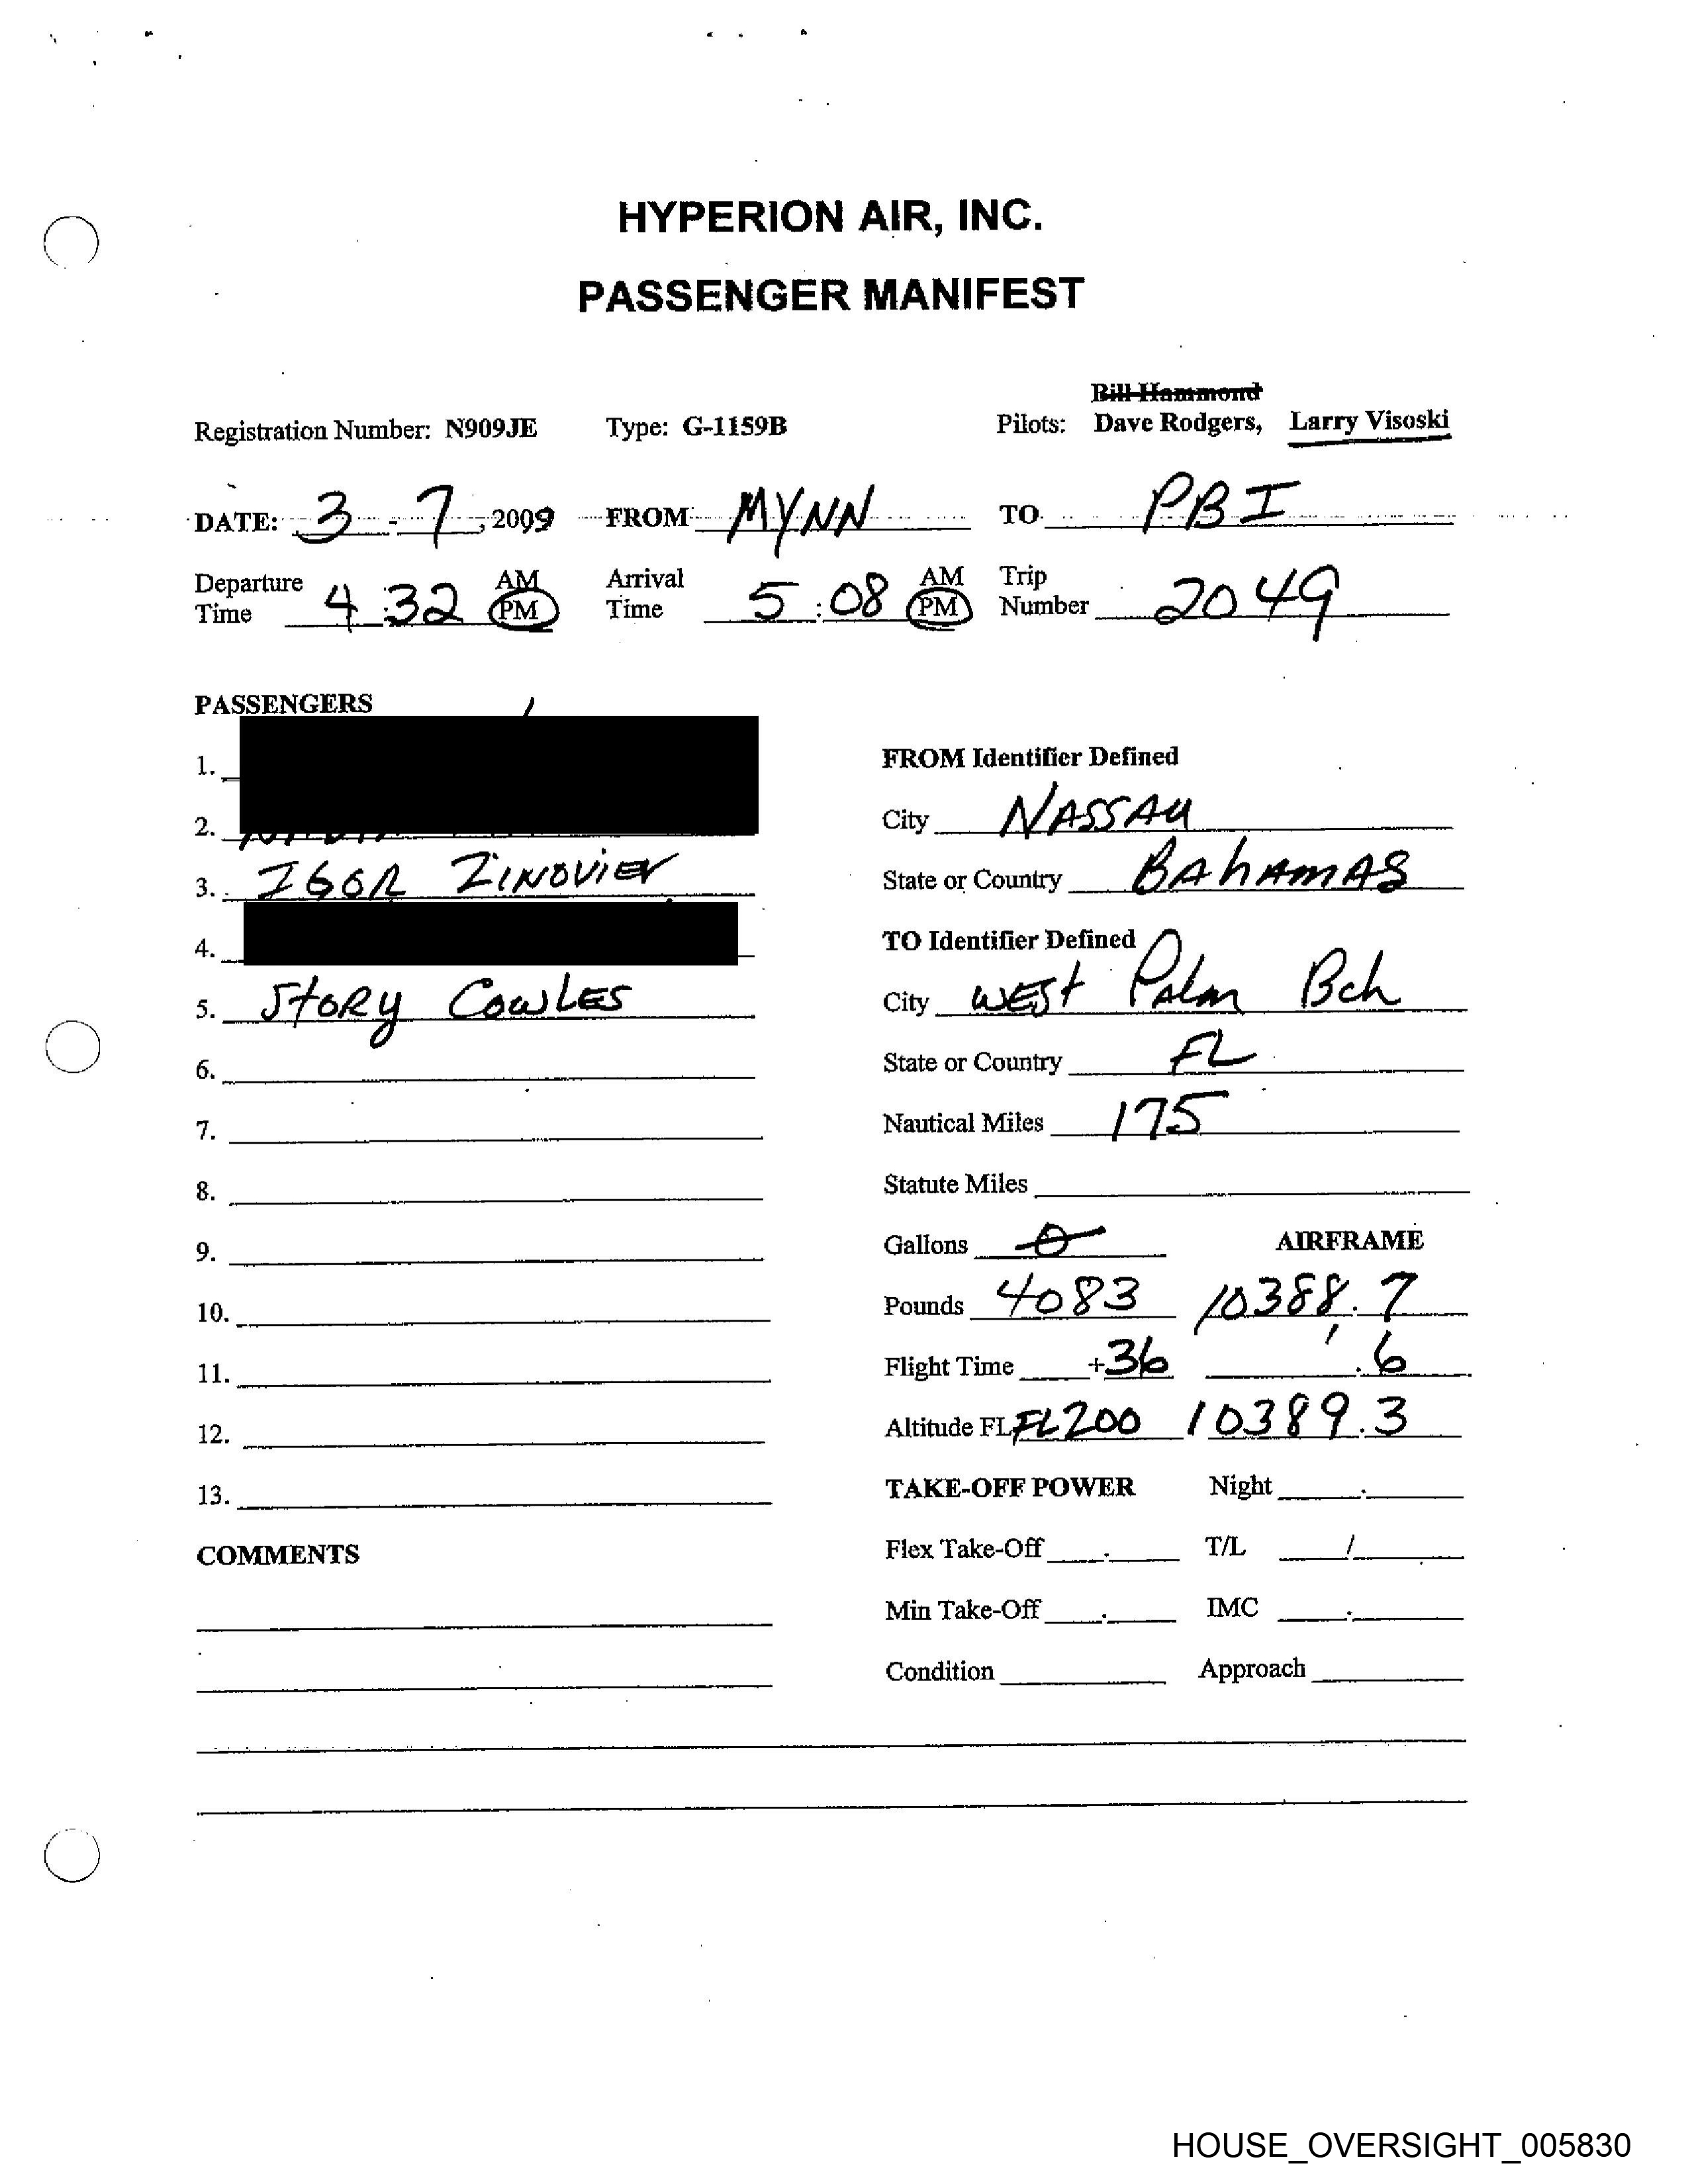 HYPERION AIR, INC.
PASSENGER MANIFEST
Bill Hammond
Registration Number: N909JE Type: G-1159B Pilots: Dave Rodgers, Larry Visoski
DATE: 3 - 7, 2009 FROM MYNN TO PBI
Departure Time 4:32 AM PM Arrival Time 5:08 AM PM Trip Number 2049
PASSENGERS
1.
FROM Identifier Defined
2.
City NASSAU
3. IGOR ZINOVIEV
State or Country BAhAMAS
4.
TO Identifier Defined
5. StORy COWLES
City WESt Palm Bch
6.
State or Country FL
7.
Nautical Miles 175
8.
Statute Miles
9.
Gallons 0 AIRFRAME
10.
Pounds 4083 10388.7
11.
Flight Time +36 .6
12.
Altitude FL FL200 10389.3
13.
TAKE-OFF POWER Night
COMMENTS
Flex Take-Off T/L /
Min Take-Off IMC
Condition Approach
HOUSE_OVERSIGHT_005830